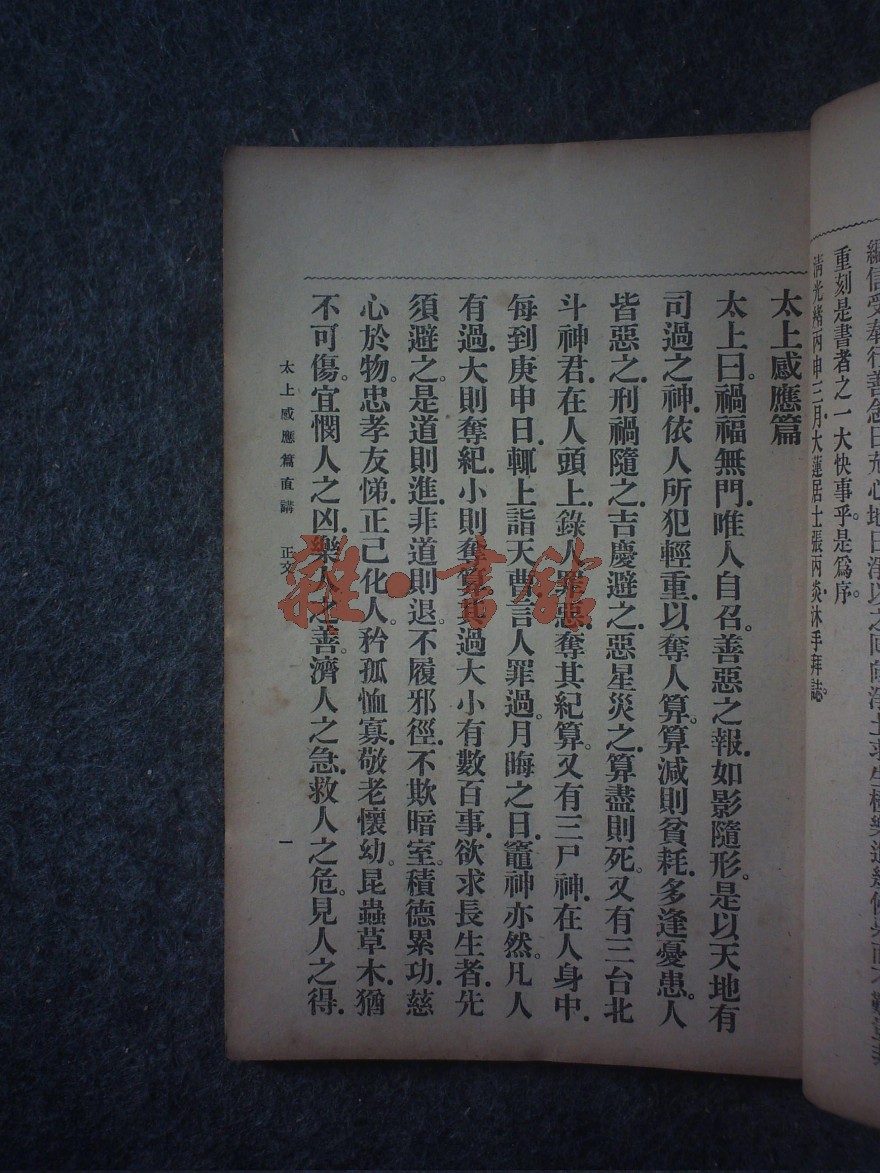 信受奉行善念日充心地日淨以之回向淨土求生極樂
重刻是書者之一大快事乎。是爲序。
清光緒丙申三月大蓮居士張丙炎．沐手拜誌。
太上感應篇
太上曰。禍福無門．唯人自召。善惡之報．如影隨形。是以天地有
司過之神．依人所犯輕重．以奪人算。算減則貧耗．多逢憂患。人
皆惡之．刑禍隨之．吉慶避之．惡星災之．算盡則死。又有三台北
斗神君．在人頭上．錄人罪惡．奪其紀算。又有三尸神．在人身中．
每到庚申日．輒上詣天曹．言人罪過。月晦之日．竈神亦然。凡人
有過．大則奪紀．小則奪算。其過大小有數百事．欲求長生者．先
須避之。是道則進．非道則退。不履邪徑．不欺暗室。積德累功．慈
心於物。忠孝友悌．正己化人。矜孤恤寡．敬老懷幼。昆蟲草木猶
不可傷。宜憫人之凶．樂人之善。濟人之急．救人之危。見人之得．
太上感應篇直講 正文 一
雜·書館